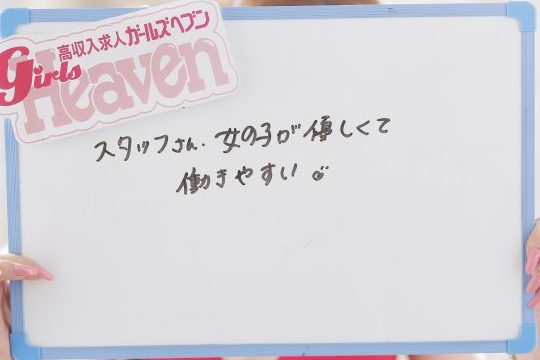 高収入求人ガールズヘブン
Girls
Heaven
スタッフさん、女の子が優しくて
働きやすい